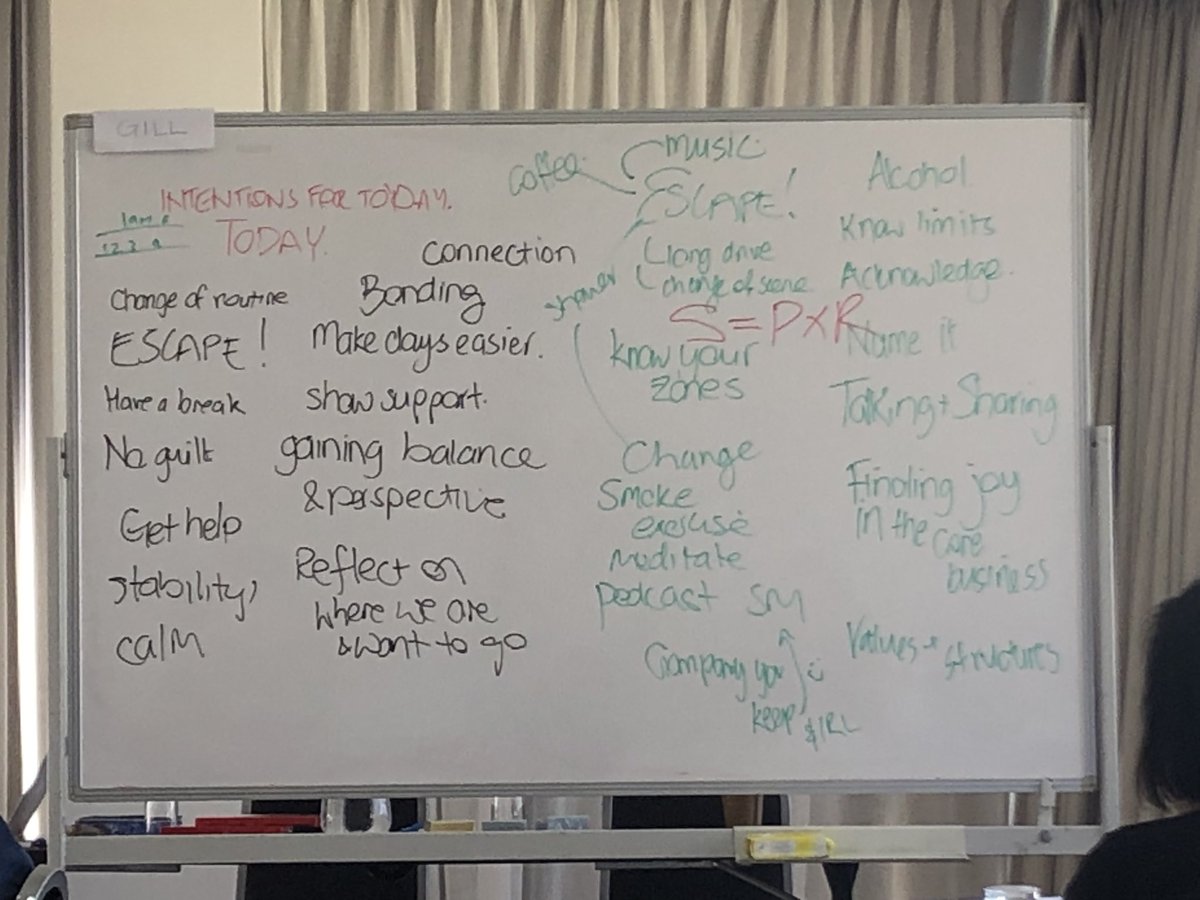 GILL
INTENTIONS FOR TODAY.
TODAY.
Change of routine
ESCAPE!
Have a break
No guilt
Get help
stability,
calm
connection
Bonding
Make days easier.
show support.
gaining balance
& perspective
Reflect on
where we are
& want to go
coffee
music
ESCAPE!
long drive
change of scene
shower
S = P X R
know your
zones
Change
Smoke
meditate
podcast SM
Company you
keep & IRL
Alcohol
Know limits
Acknowledge.
Name it
Talking + Sharing
Finding joy
in the care
business
Values + structures